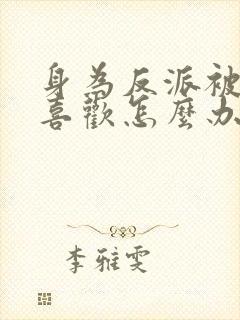 身為反派被
喜歡怎麼办
李雅雯